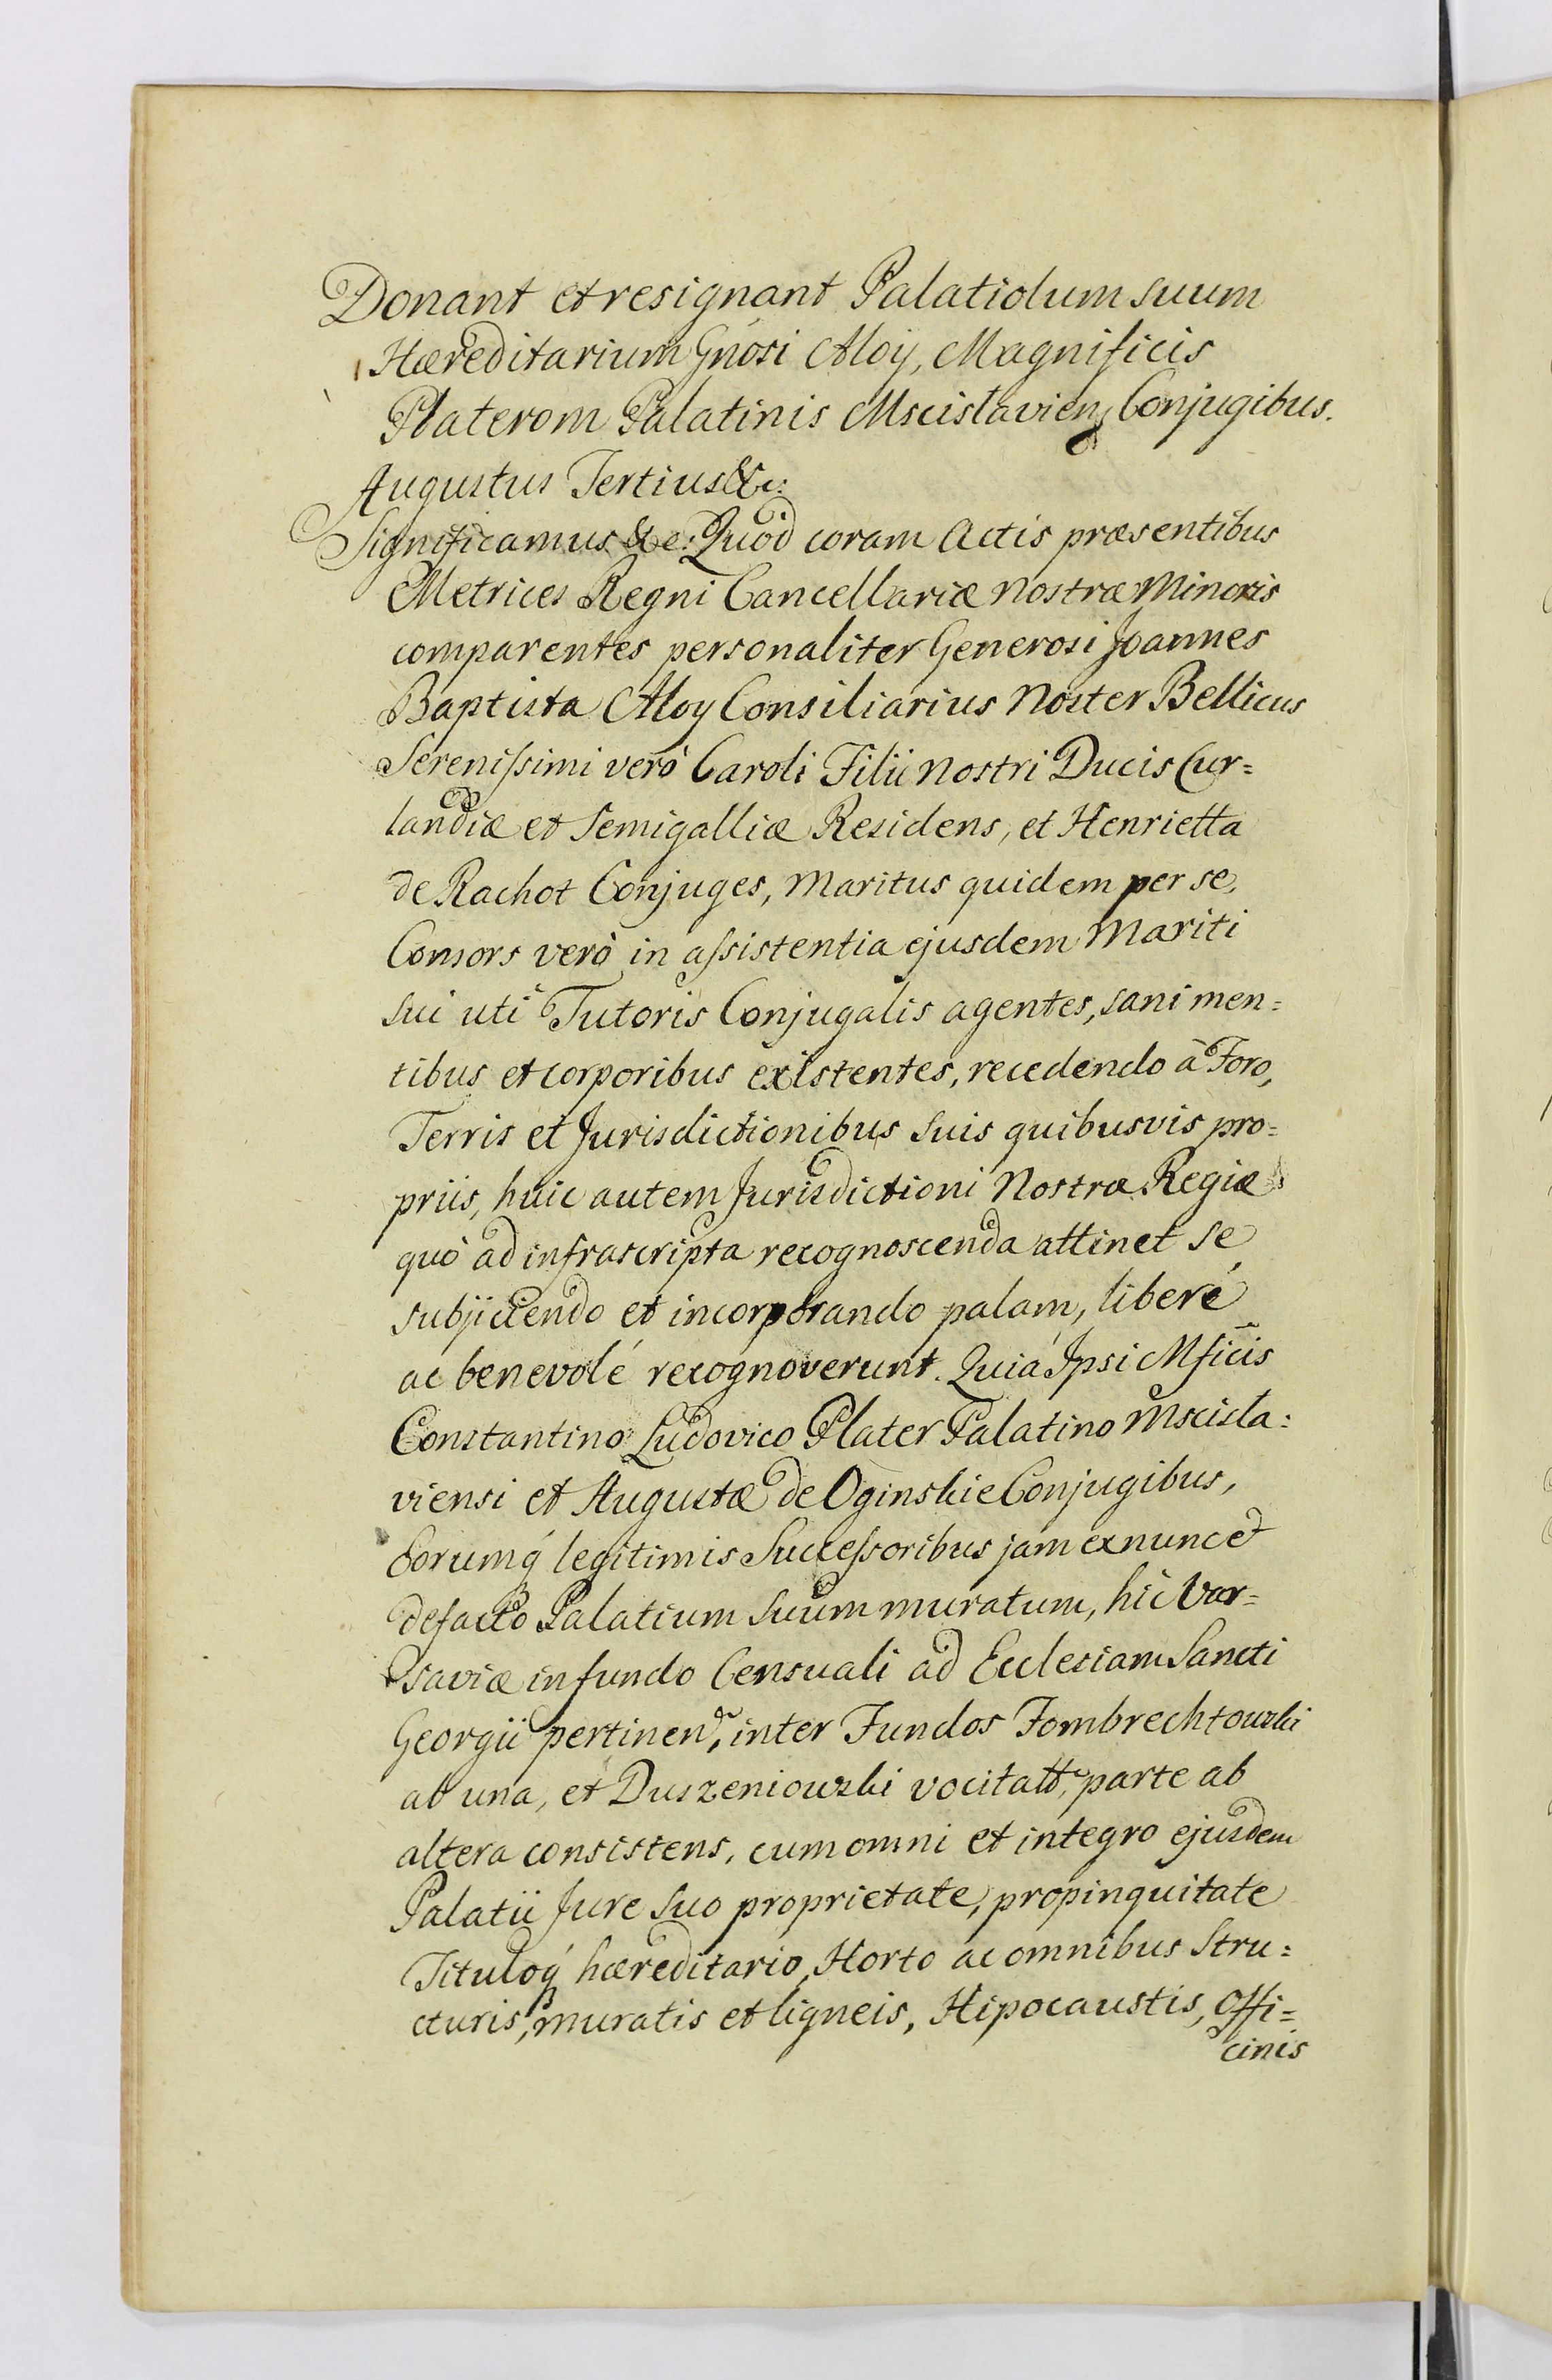 Donant et resignant Palatiolum suum
Hæreditarium Gnosi Aloy, Magnificis
Platerom Palatinis Mscislavien, Conjugibus.
Augustus Tertius &c:
Significamus &c: Quòd coram Actis præsentibus
Metrices Regni Cancellariæ Nostræ Minoris
comparentes personaliter Generosi Joannes
Baptista Aloy Consiliarius Noster Bellicus
Serenissimi verò Caroli Filii Nostri Ducis Cur=
landiæ et Semigalliæ Residens, et Henrietta
de Rachot Conjuges, Maritus quidem per se,
Consors verò in assistentia ejusdem Mariti
sui uti Tutoris Conjugalis agentes, sani men=
tibus et corporibus existentes, recedendo à Foro,
Terris et Jurisdictionibus suis quibusvis pro=
priis, huic autem Jurisdictioni Nostræ Regiæ
quò ad infrascripta recognoscenda attinet se
subjiciendo et incorporando palam, liberé
ac benevolé recognoverunt. Quia Ipsi Mficis
Constantino Ludovico Plater Palatino Mscisla=
viensi et Augustæ de Oginskie Conjugibus,
Eorumq́ legitimis Successoribus jam ex nunc et
de facto Palatium suum muratum, hic Var=
saviæ in fundo Censuali ad Ecclesiam Sancti
Georgii pertinen, inter Fundos Fombrechtowski
ab una, et Duszeniowski vocitatt, parte ab
altera consistens, cum omni et integro ejusdem
Palatii Jure suo proprietate, propinquitate
Tituloq́ hæreditario, Horto ac omnibus Stru=
cturis, muratis et ligneis, Hipocaustis, Offi=
cinis